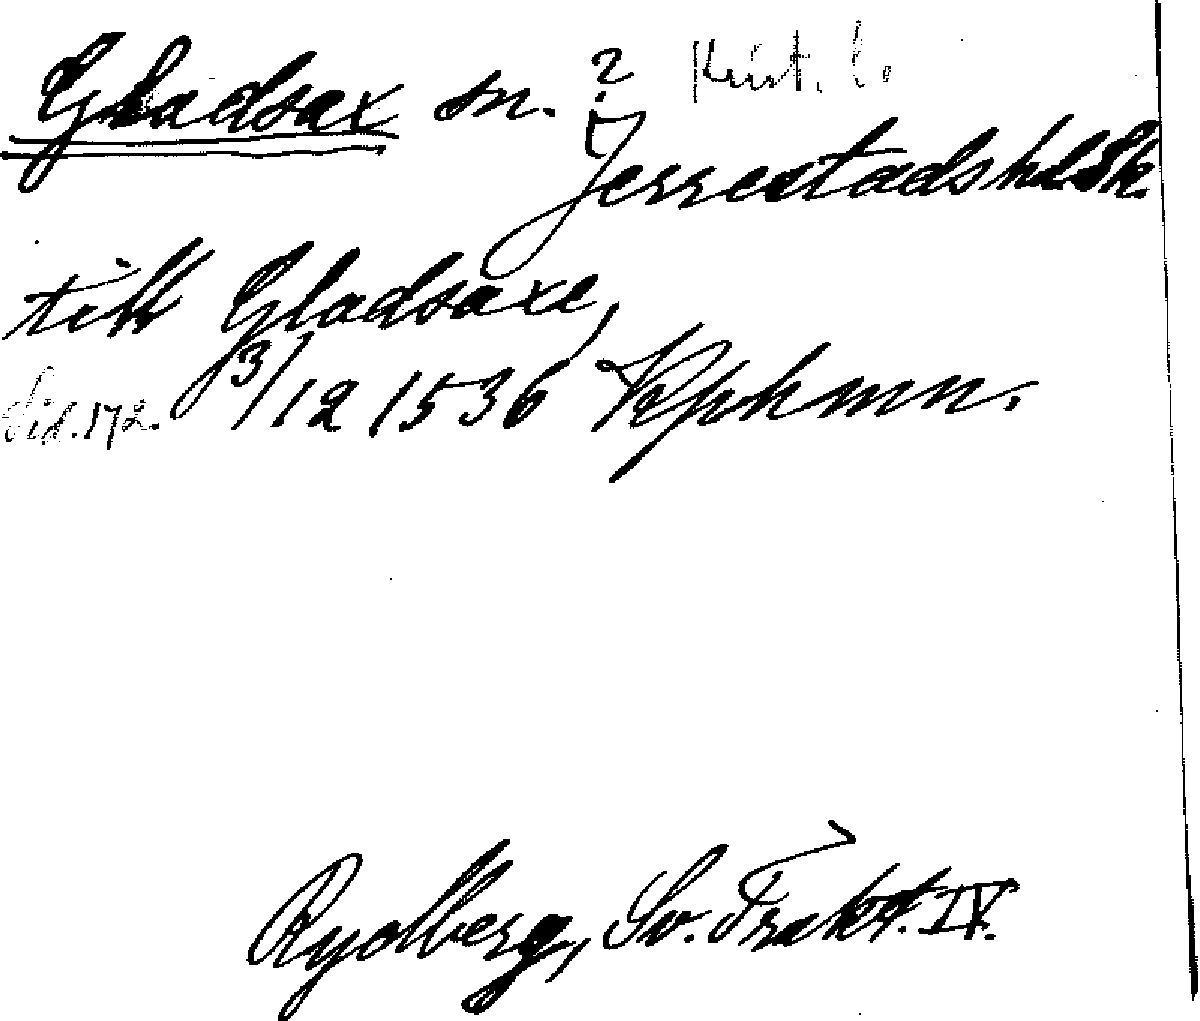 Gladsax sn. ? Krist. l.
Jerrestads hd Sk.
till Gladsaxe,
sid. 172. 3/12 1536 Kphmn.
Rydberg, Sv. Trakt. IV.